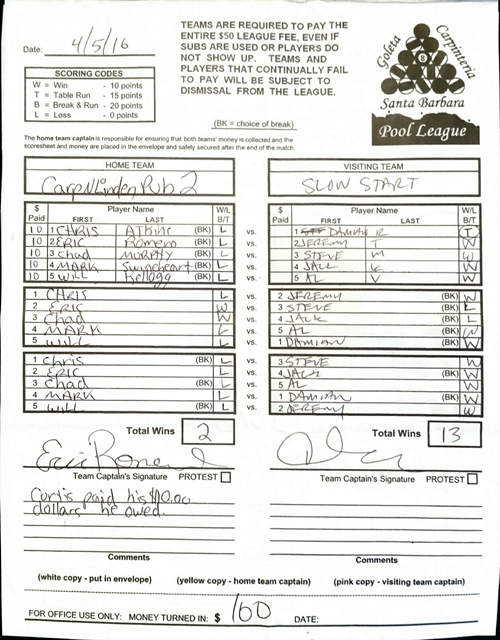 Date: 4/5/16
TEAMS ARE REQUIRED TO PAY THE
ENTIRE $50 LEAGUE FEE, EVEN IF
SUBS ARE USED OR PLAYERS DO
NOT SHOW UP. TEAMS AND
PLAYERS THAT CONTINUALLY FAIL
TO PAY WILL BE SUBJECT TO
DISMISSAL FROM THE LEAGUE.
Goleta Carpinteria
8
Santa Barbara
Pool League
SCORING CODES
W = Win - 10 points
T = Table Run - 15 points
B = Break & Run - 20 points
L = Loss - 0 points
(BK = choice of break)
The home team captain is responsible for ensuring that both teams' money is collected and the
scoresheet and money are placed in the envelope and safely secured after the end of the match.
HOME TEAM VISITING TEAM
Carp N Linden Pub 2 SLOW START
$ Paid Player Name FIRST LAST W/L B/T $ Paid Player Name FIRST LAST W/L B/T
10 1 CHRIS Atkins (BK) L vs. 1 DAMIAN R T
10 2 ERIC Romero (BK) L vs. 2 JEREMY T W
10 3 chad MURPHY (BK) L vs. 3 STEVE M W
10 4 MARK Swingeheart (BK) L vs. 4 JACK W
10 5 WILL Kellogg (BK) L vs. 5 AL V W
1 CHRIS L vs. 2 JEREMY (BK) W
2 ERIC W vs. 3 STEVE (BK) L
3 Chad W vs. 4 JACK (BK) L
4 MARK L vs. 5 AL (BK) W
5 WILL L vs. 1 DAMIAN (BK) W
1 Chris (BK) L vs. 3 STEVE W
2 ERIC L vs. 4 JACK (BK) W
3 Chad (BK) L vs. 5 AL W
4 MARK L vs. 1 DAMIAN (BK) W
5 WILL (BK) L vs. 2 JEREMY W
Total Wins 2 Total Wins 13
Team Captain's Signature PROTEST Team Captain's Signature PROTEST
Curtis paid his $10.00
dollars he owed.
Comments Comments
(white copy - put in envelope) (yellow copy - home team captain) (pink copy - visiting team captain)
FOR OFFICE USE ONLY: MONEY TURNED IN: $ 100 DATE: